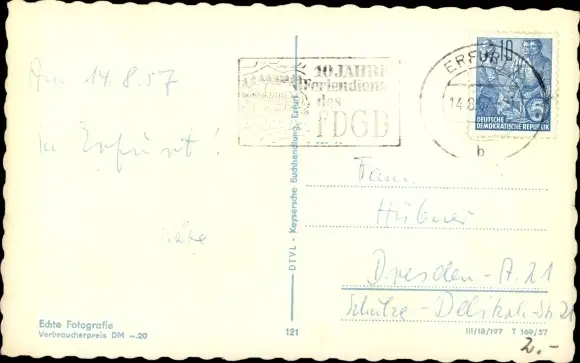 Am 14.8.57
in Erfurt!
Käte
Echte Fotografie
Verbraucherpreis DM -.20
DTVL - Keysersche Buchhandlung, Erfurt
121
10 JAHRE
Feriendienst
des
FDGB
ERFURT
14.8.57
b
10
5
DEUTSCHE
DEMOKRATISCHE REPUBLIK
Fam.
Hübner
Dresden-A. 21
Schulze-Delitzsch-Str 21
III/18/197 T 169/57
2.-